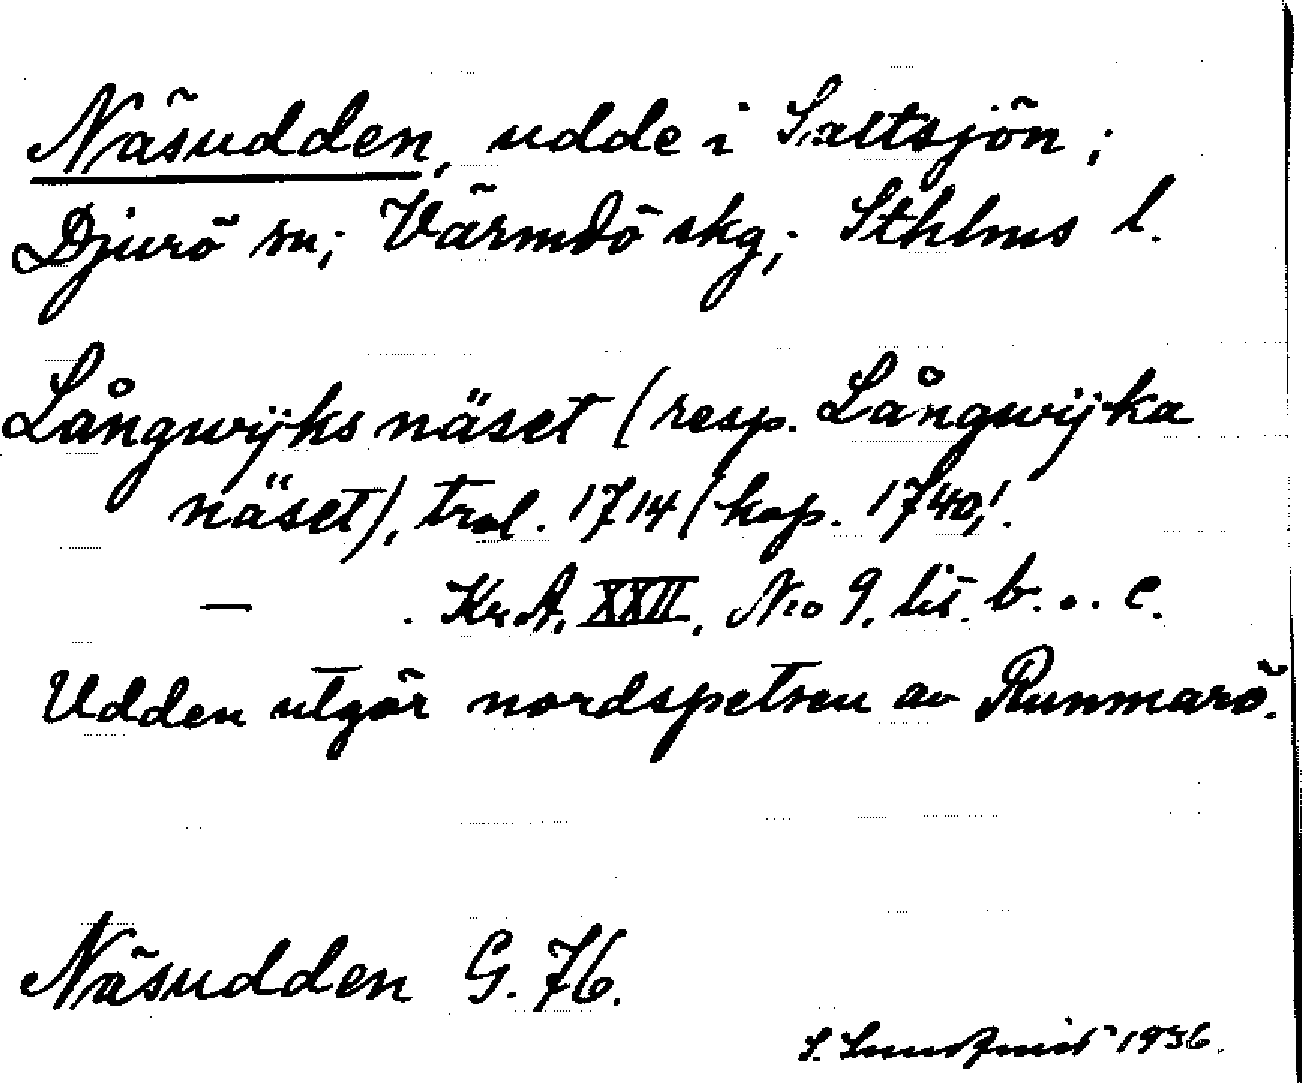 Näsudden, udde i Saltsjön;
Djurö sn; Värmdö skg; Sthlms l.
Långwijks näset (resp. Långwijka
näset), trol. 1714 (kop. 1740,!.
— . Kr.A. XXII. No 9. lit. b... c.
Udden utgör nordspetsen av Runmarö.
Näsudden G. 76.
S. 1936.